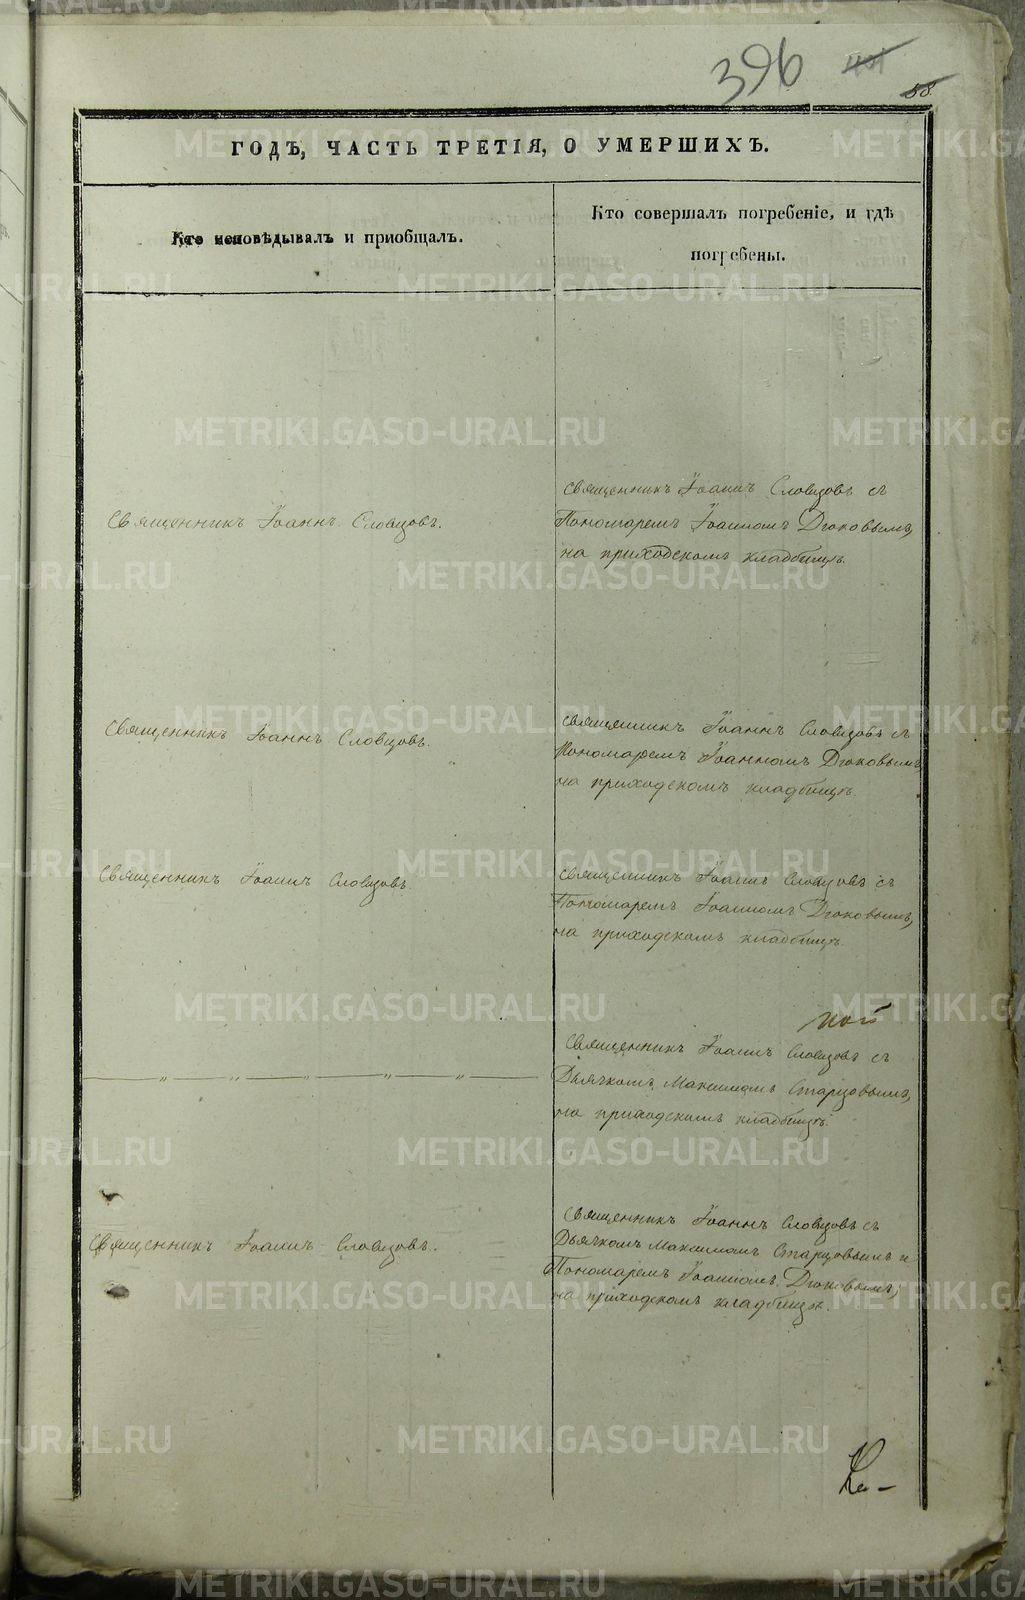 396
58
ГОДЪ, ЧАСТЬ ТРЕТІЯ, О УМЕРШИХЪ.
Кто исповѣдывалъ и приобщалъ.
Кто совершалъ погребеніе, и гдѣ
погребены.
Священникъ Іоаннъ Словцовъ.
Священникъ Іоаннъ Словцовъ съ
Пономаремъ Іоанномъ Дюковымъ,
на приходскомъ кладбищѣ.
Священникъ Іоаннъ Словцовъ.
Священникъ Іоаннъ Словцовъ съ
Пономаремъ Іоанномъ Дюковымъ,
на приходскомъ кладбищѣ.
Священникъ Іоаннъ Словцовъ.
Священникъ Іоаннъ Словцовъ съ
Пономаремъ Іоанномъ Дюковымъ,
на приходскомъ кладбищѣ.
— „ — „ — „ — „ — „ —
Священникъ Іоаннъ Словцовъ съ
Дьячкомъ Максимомъ Старцовымъ,
на приходскомъ кладбищѣ.
Священникъ Іоаннъ Словцовъ.
Священникъ Іоаннъ Словцовъ съ
Дьячкомъ Максимомъ Старцовымъ и
Пономаремъ Іоанномъ Дюковымъ,
на приходскомъ кладбищѣ.
METRIKI.GASO-URAL.RU